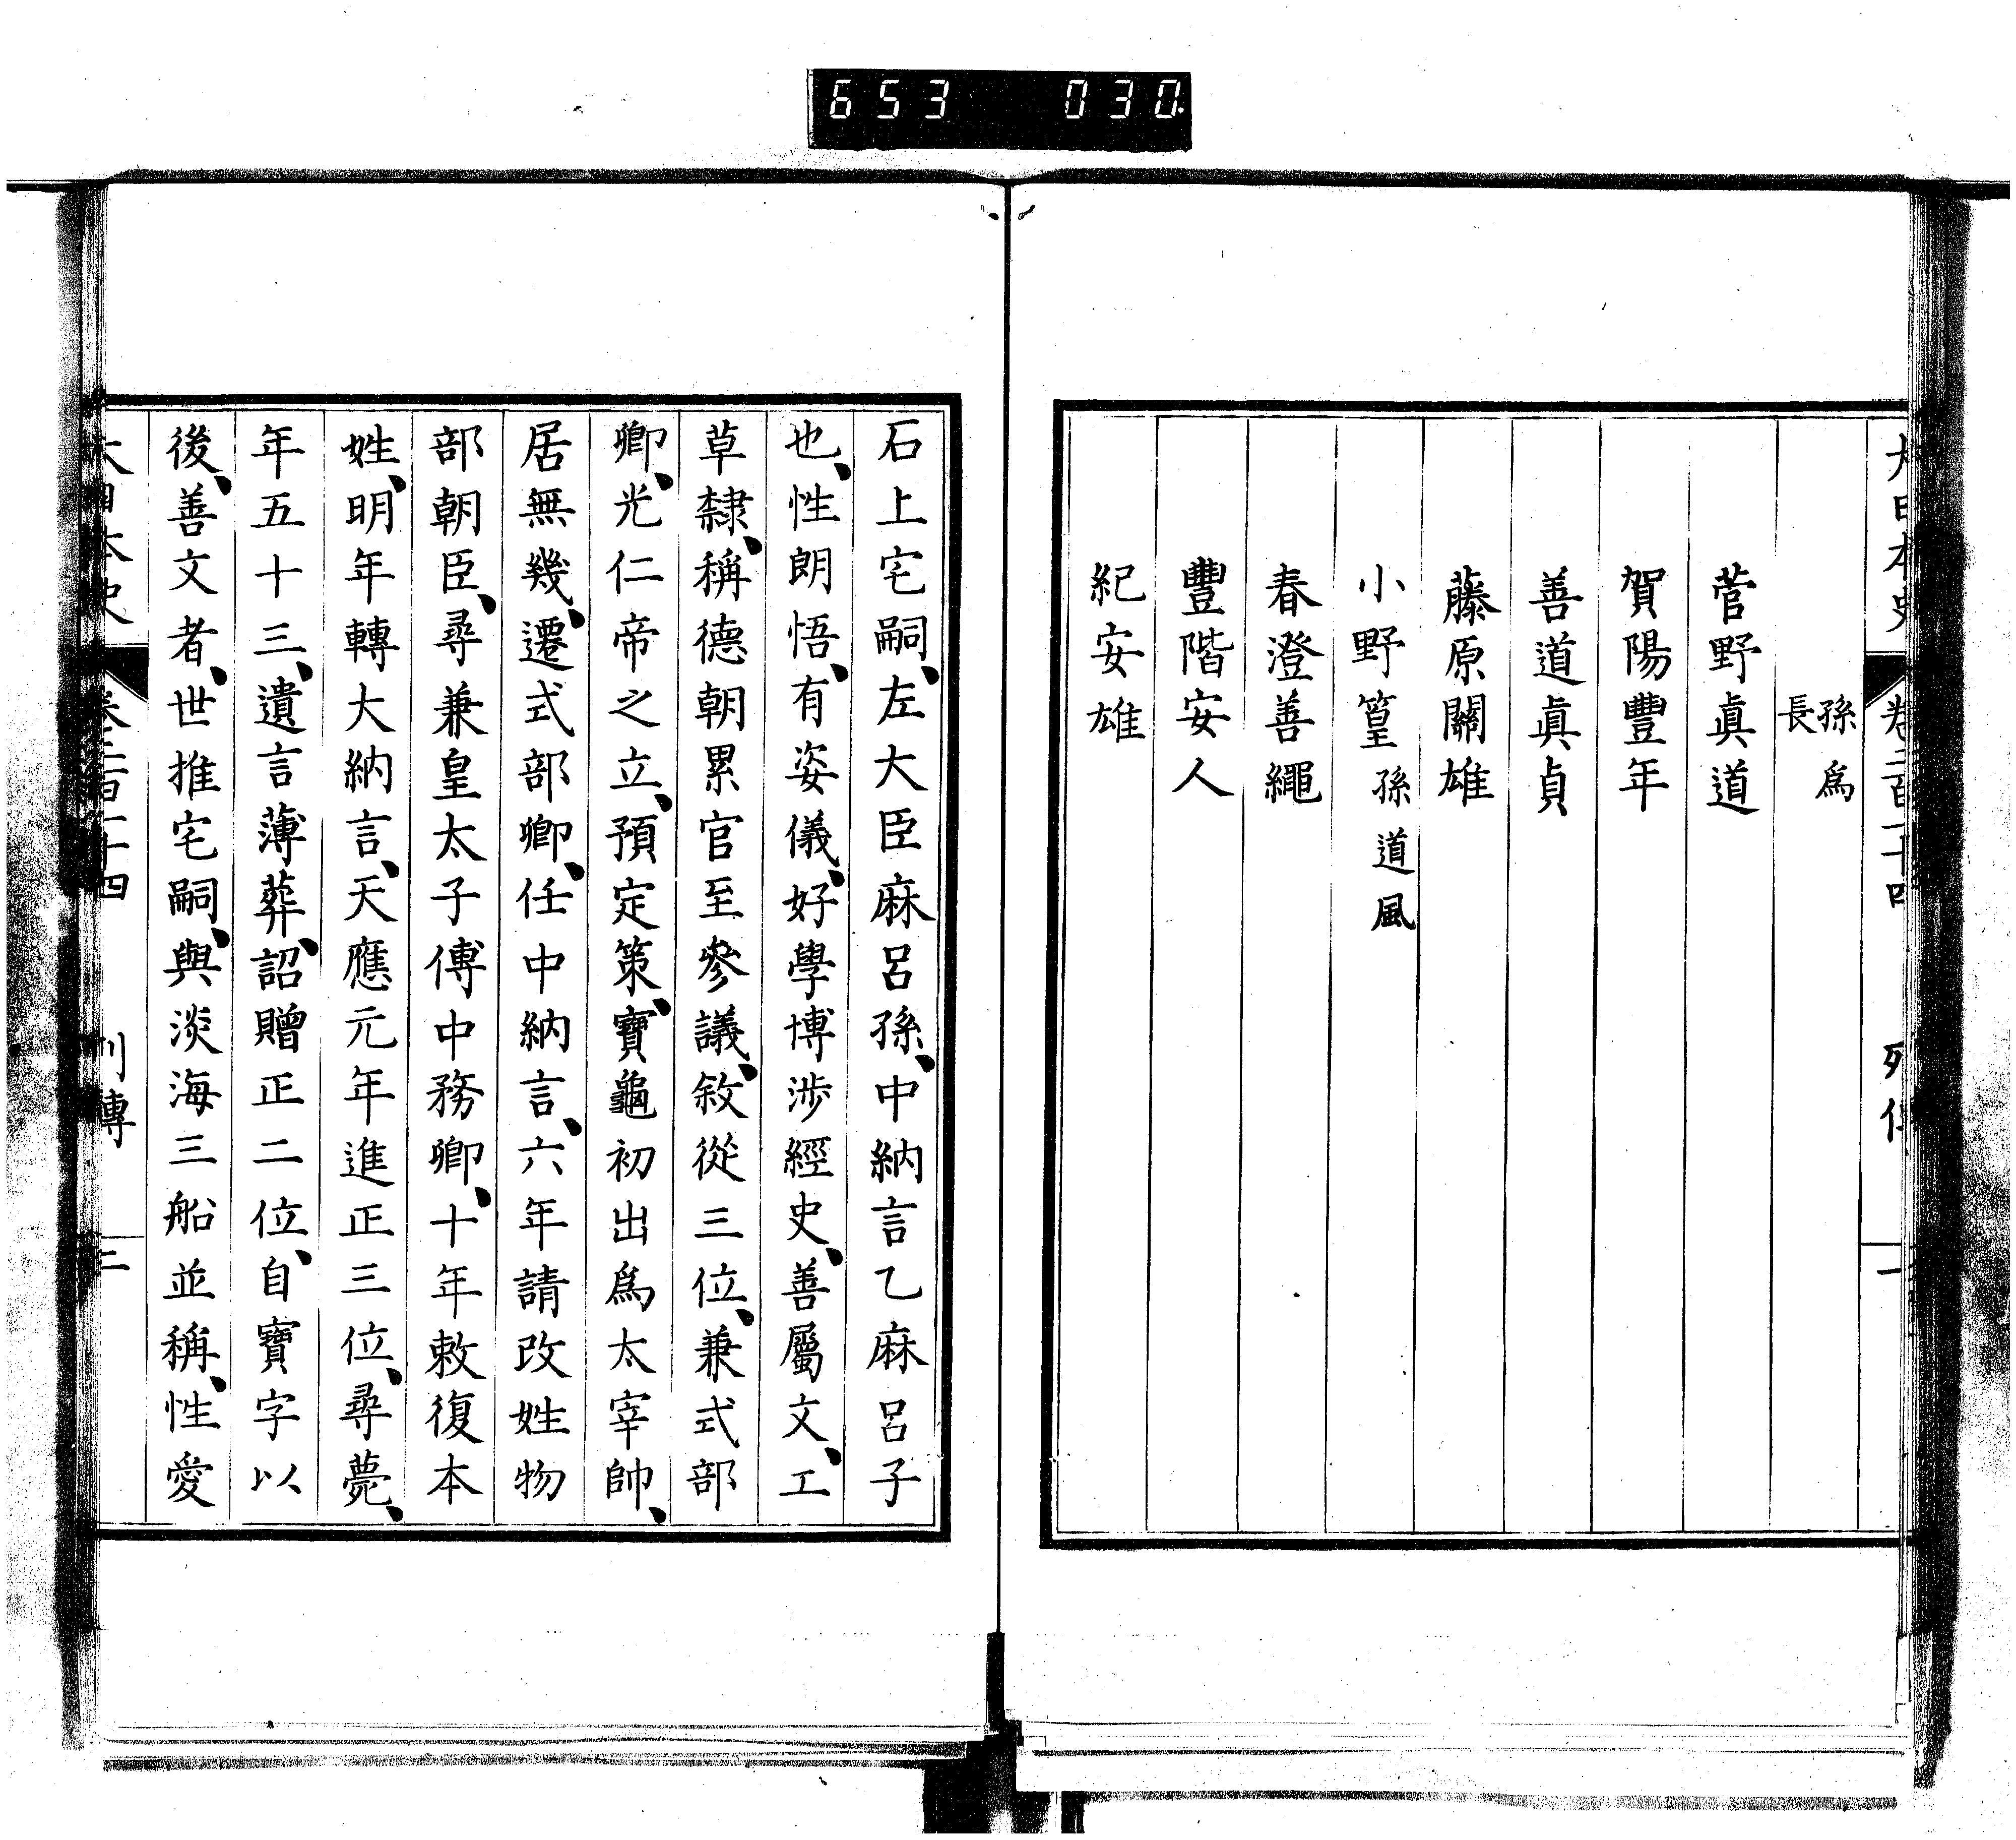 653 030
大日本史 卷二百一十四 列傳 一
孫爲
長
菅野眞道
賀陽豐年
善道眞貞
藤原關雄
小野篁 孫道風
春澄善繩
豐階安人
紀安雄
石上宅嗣、左大臣麻呂孫、中納言乙麻呂子
也、性朗悟、有姿儀、好學博涉經史、善屬文、工
草隸、稱德朝累官至參議、敘從三位、兼式部
卿、光仁帝之立、預定策、寶龜初出爲太宰帥、
居無幾、遷式部卿、任中納言、六年請改姓物
部朝臣、尋兼皇太子傅中務卿、十年敕復本
姓、明年轉大納言、天應元年進正三位、尋薨、
年五十三、遺言薄葬、詔贈正二位、自寶字以
後、善文者、世推宅嗣、與淡海三船並稱、性愛
大日本史 卷二百一十四 列傳 二